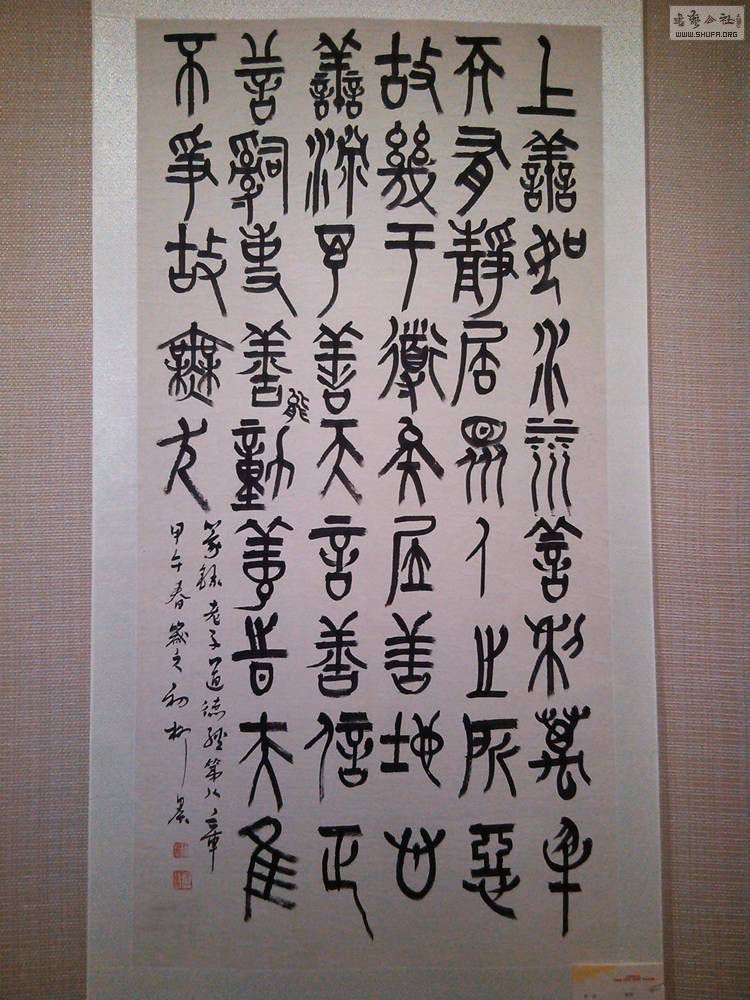 上善如水水善利萬物
而有靜居眾人之所惡
故幾于道矣居善地心
善淵予善天言善信正
善治事善能動善時夫唯
不爭故無尤
篆錄老子道德經第八章
甲午春歲之初
书艺公社
WWW.SHUFA.ORG